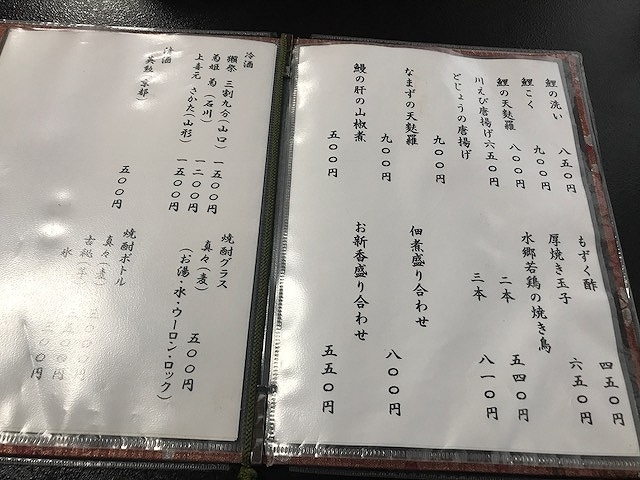 鯉の洗い 八五〇円
鯉こく 九〇〇円
鯉の天麩羅 八〇〇円
川えび唐揚げ 六五〇円
どじょうの唐揚げ 九〇〇円
なまずの天麩羅 九〇〇円
鰻の肝の山椒煮 五〇〇円
もずく酢 四五〇円
厚焼き玉子 六五〇円
水郷若鶏の焼き鳥
二本 五四〇円
三本 八一〇円
佃煮盛り合わせ 八〇〇円
お新香盛り合わせ 五五〇円
冷酒
獺祭 三割九分(山口) 一五〇〇円
菊姫 菊(石川) 一二〇〇円
上喜元 さかた(山形) 一五〇〇円
冷酒
英勲(京都) 五〇〇円
焼酎グラス
真々(麦) 五〇〇円
(お湯・水・ウーロン・ロック)
焼酎ボトル
真々(麦)
水